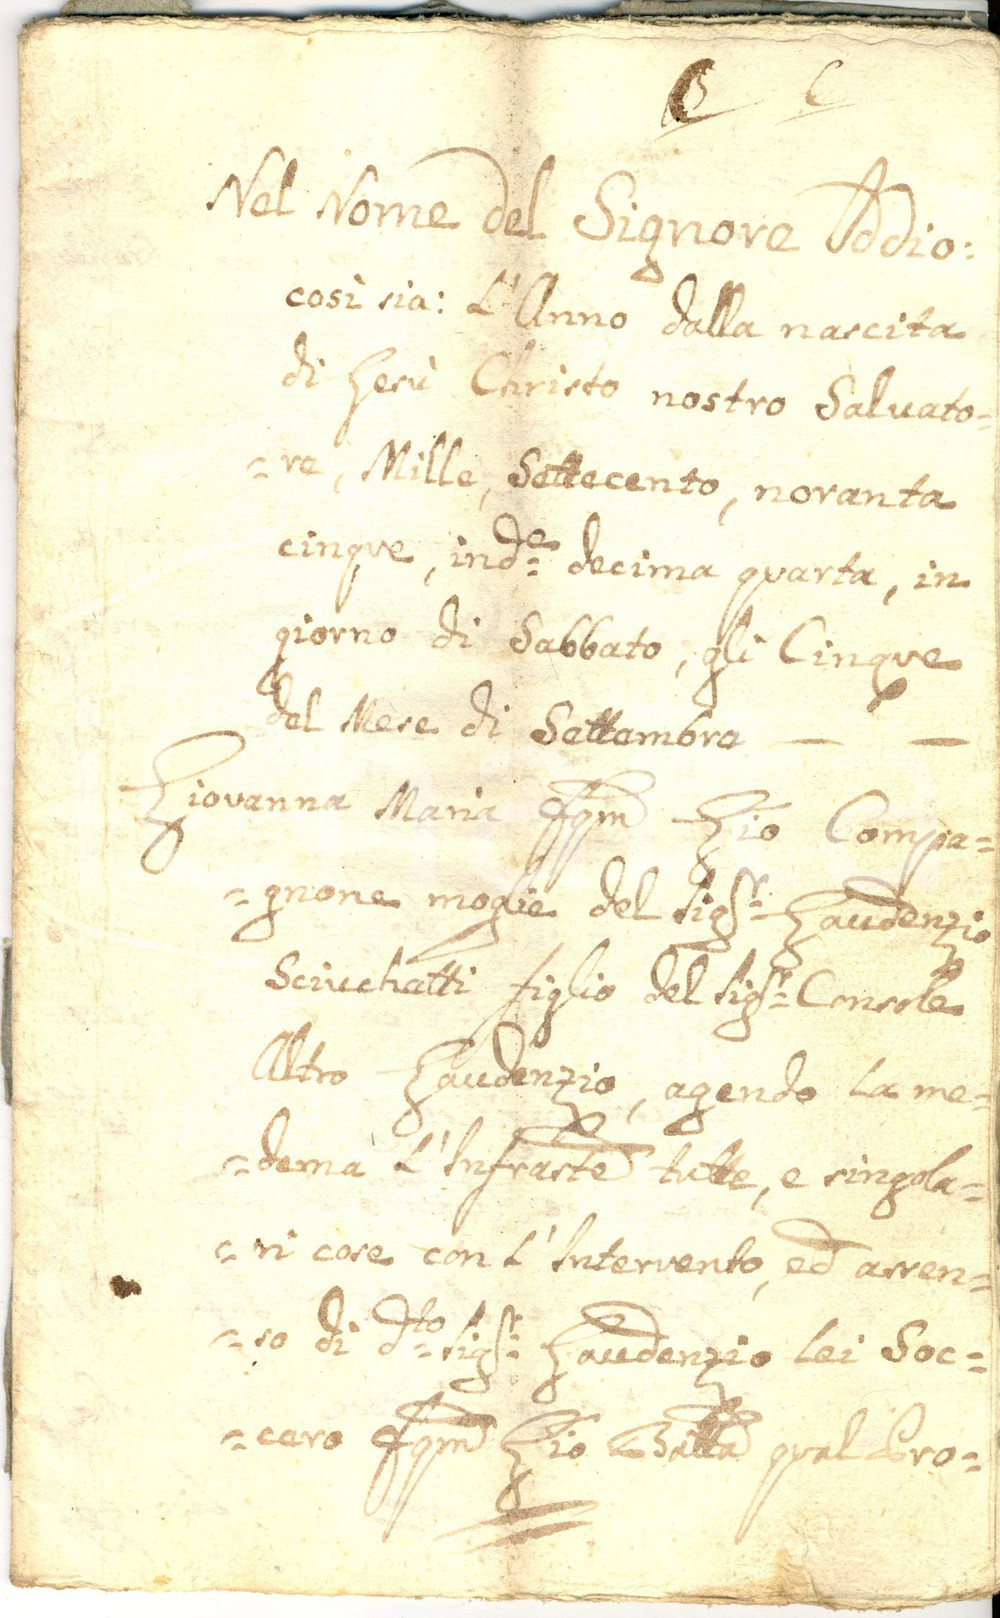 C C
Nel Nome del Signore Addio:
così sia: L'Anno dalla nascita
di Gesù Christo nostro Saluato=
=re, Mille, Settecento, novanta
cinque, inde: decima quarta, in
giorno di Sabbato, gli Cinque
del Mese di Settembre — —
Giovanna Maria fqm Gio Compa=
=gnone moglie del Sigr: Gaudenzio
Sciuchatti figlio del Sigr: Console
Altro Gaudenzio, agendo la me=
=dema l'Infraste tutte, e singola=
=ri cose con l'Intervento, ed assen=
=so di dto: Sigr: Gaudenzio lei Soc=
=cero fqm Gio Batta qual Pro=